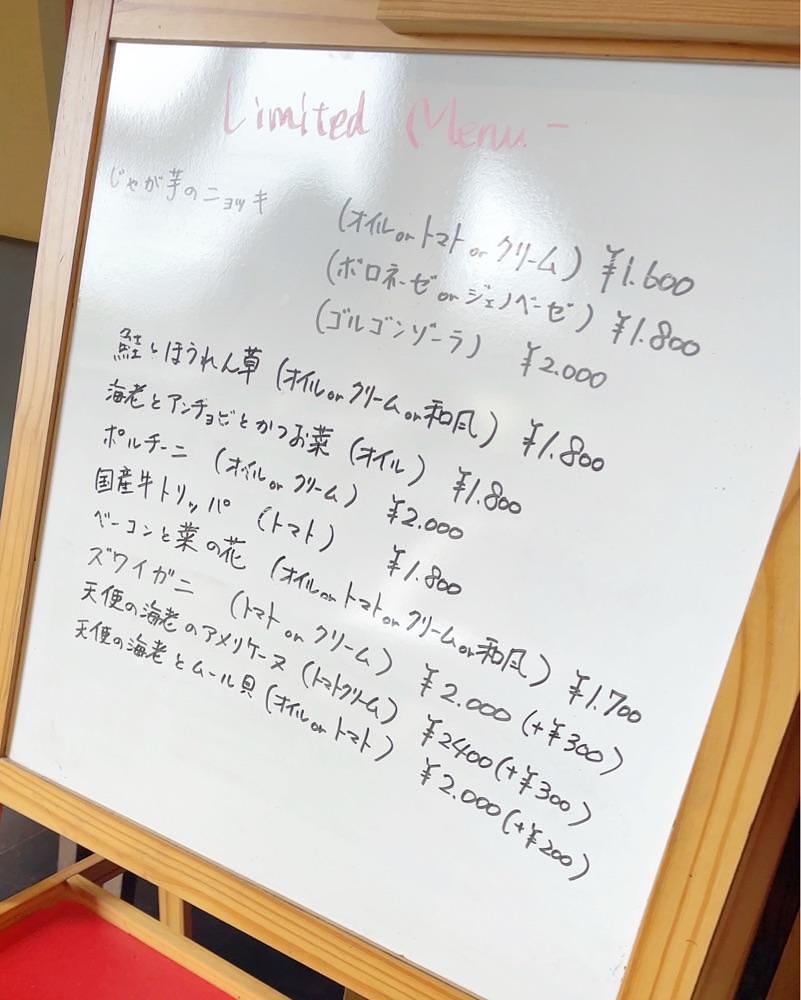 Limited Menu -
じゃが芋のニョッキ (オイル or トマト or クリーム) ¥1.600
(ボロネーゼ or ジェノベーゼ) ¥1.800
(ゴルゴンゾーラ) ¥2.000
鮭とほうれん草 (オイル or クリーム or 和風) ¥1.800
海老とアンチョビとかつお菜 (オイル) ¥1.800
ポルチーニ (オイル or クリーム) ¥2.000
国産牛トリッパ (トマト) ¥1.800
ベーコンと菜の花 (オイル or トマト or クリーム or 和風) ¥1.700
ズワイガニ (トマト or クリーム) ¥2.000 (+¥300)
天使の海老のアメリケーヌ (トマトクリーム) ¥2400 (+¥300)
天使の海老とムール貝 (オイル or トマト) ¥2.000 (+¥200)